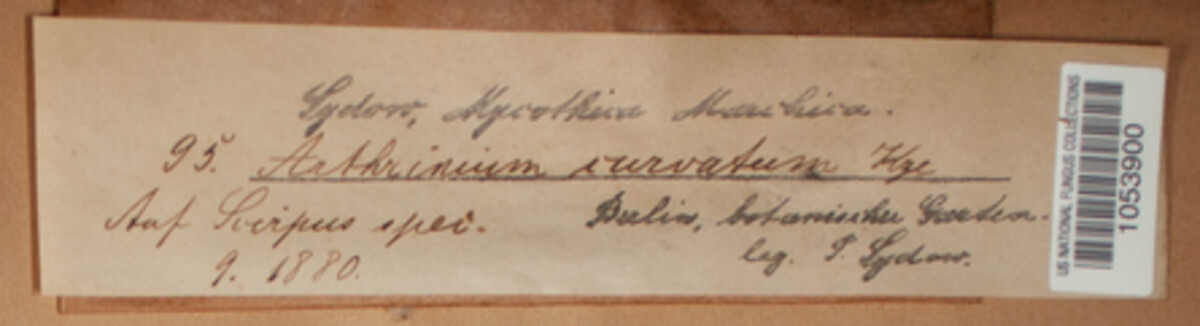 Sydow, Mycotheca Marchica.
95. Arthrinium curvatum Kze
Auf Scirpus spec. Berlin, botanischer Garten.
9. 1880. leg. P. Sydow.
US NATIONAL FUNGUS COLLECTIONS
1053900